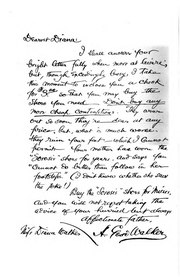 Dearest Diana
I shall answer your
bright letter fully when more at leisure,
but, though exceedingly busy, I take
this moment to inclose you a check
for so that you may buy the
shoes you need. Don't buy any
more cheap contraptions. They wear
out so soon they're dear at any
price. But, what is much worse,
they ruin your feet - which I cannot
permit. Your mother has worn the
"Sorosis" shoe for years, and says you
"cannot do better than follow in her
footsteps." (I don't know whether she sees
the joke!)
Buy the "Sorosis" shoe for mine,
and you will not regret taking the
advice of your hurried but always
affectionate father,
A. Walker
Miss Diana Walker